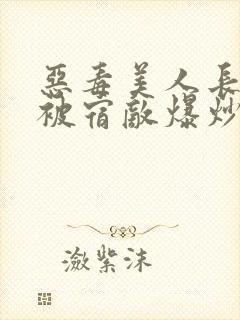 惡毒美人長
被宿敵爆炒
瀲紫沫